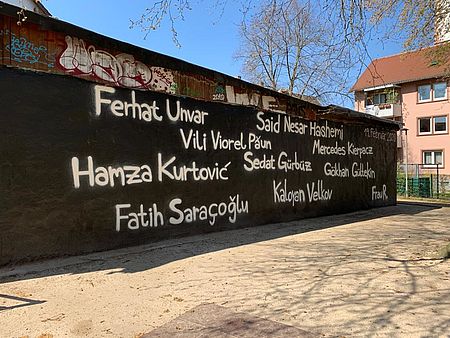 Ferhat Unvar
Said Nesar Hashemi
19. Februar 2020
Vili Viorel Păun
Mercedes Kierpacz
Hamza Kurtović
Sedat Gürbüz
Gökhan Gültekin
Fatih Saraçoğlu
Kaloyan Velkov
Frau R.